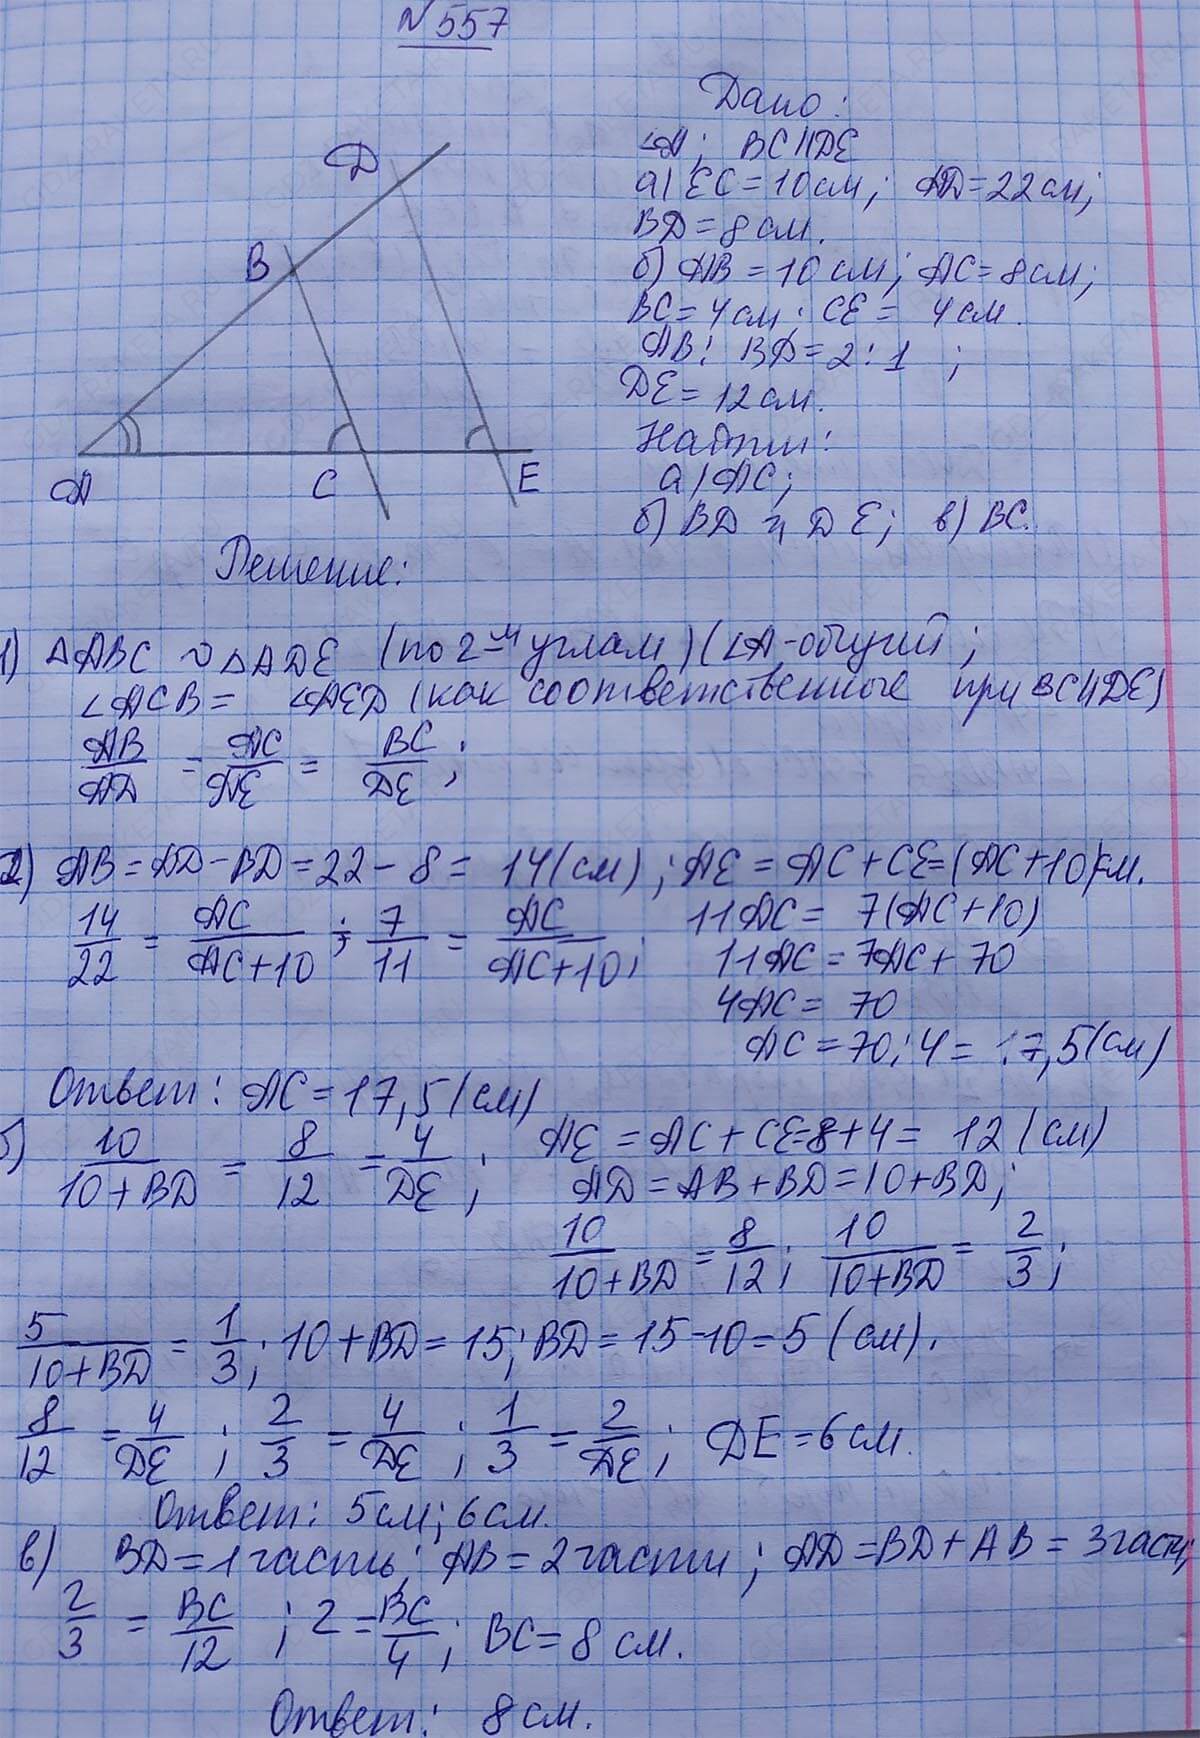 №557
Дано:
∠A; BC||DE
а) EC=10см; AD=22см;
BD=8см.
б) AB=10см; AC=8см;
BC=4см; CE= 4см.
AB: BD=2:1 ;
DE=12см.
Найти:
а) AC;
б) BD и DE; в) BC.
D
B
A
C
E
Решение:
1) △ABC ∾ △ADE (по 2-м углам) (∠A-общий;
∠ACB= ∠AED (как соответственные при BC||DE)
AB/AD = AC/AE = BC/DE;
2) AB=AD-BD=22-8= 14(см); AE=AC+CE=(AC+10)см.
14/22 = AC/AC+10; 7/11 = AC/AC+10; 11AC= 7(AC+10)
11AC=7AC+70
4AC= 70
AC=70:4= 17,5(см)
Ответ: AC=17,5(см)
б) 10/10+BD = 8/12 = 4/DE; AE=AC+CE=8+4= 12(см)
AD=AB+BD=10+BD;
10/10+BD = 8/12; 10/10+BD = 2/3;
5/10+BD = 1/3; 10+BD=15; BD=15-10=5 (см).
8/12 = 4/DE; 2/3 = 4/DE; 1/3 = 2/DE; DE=6см.
Ответ: 5см; 6см.
в) BD=1часть; AB=2части; AD=BD+AB=3части
2/3 = BC/12; 2=BC/4; BC=8 см.
Ответ: 8см.